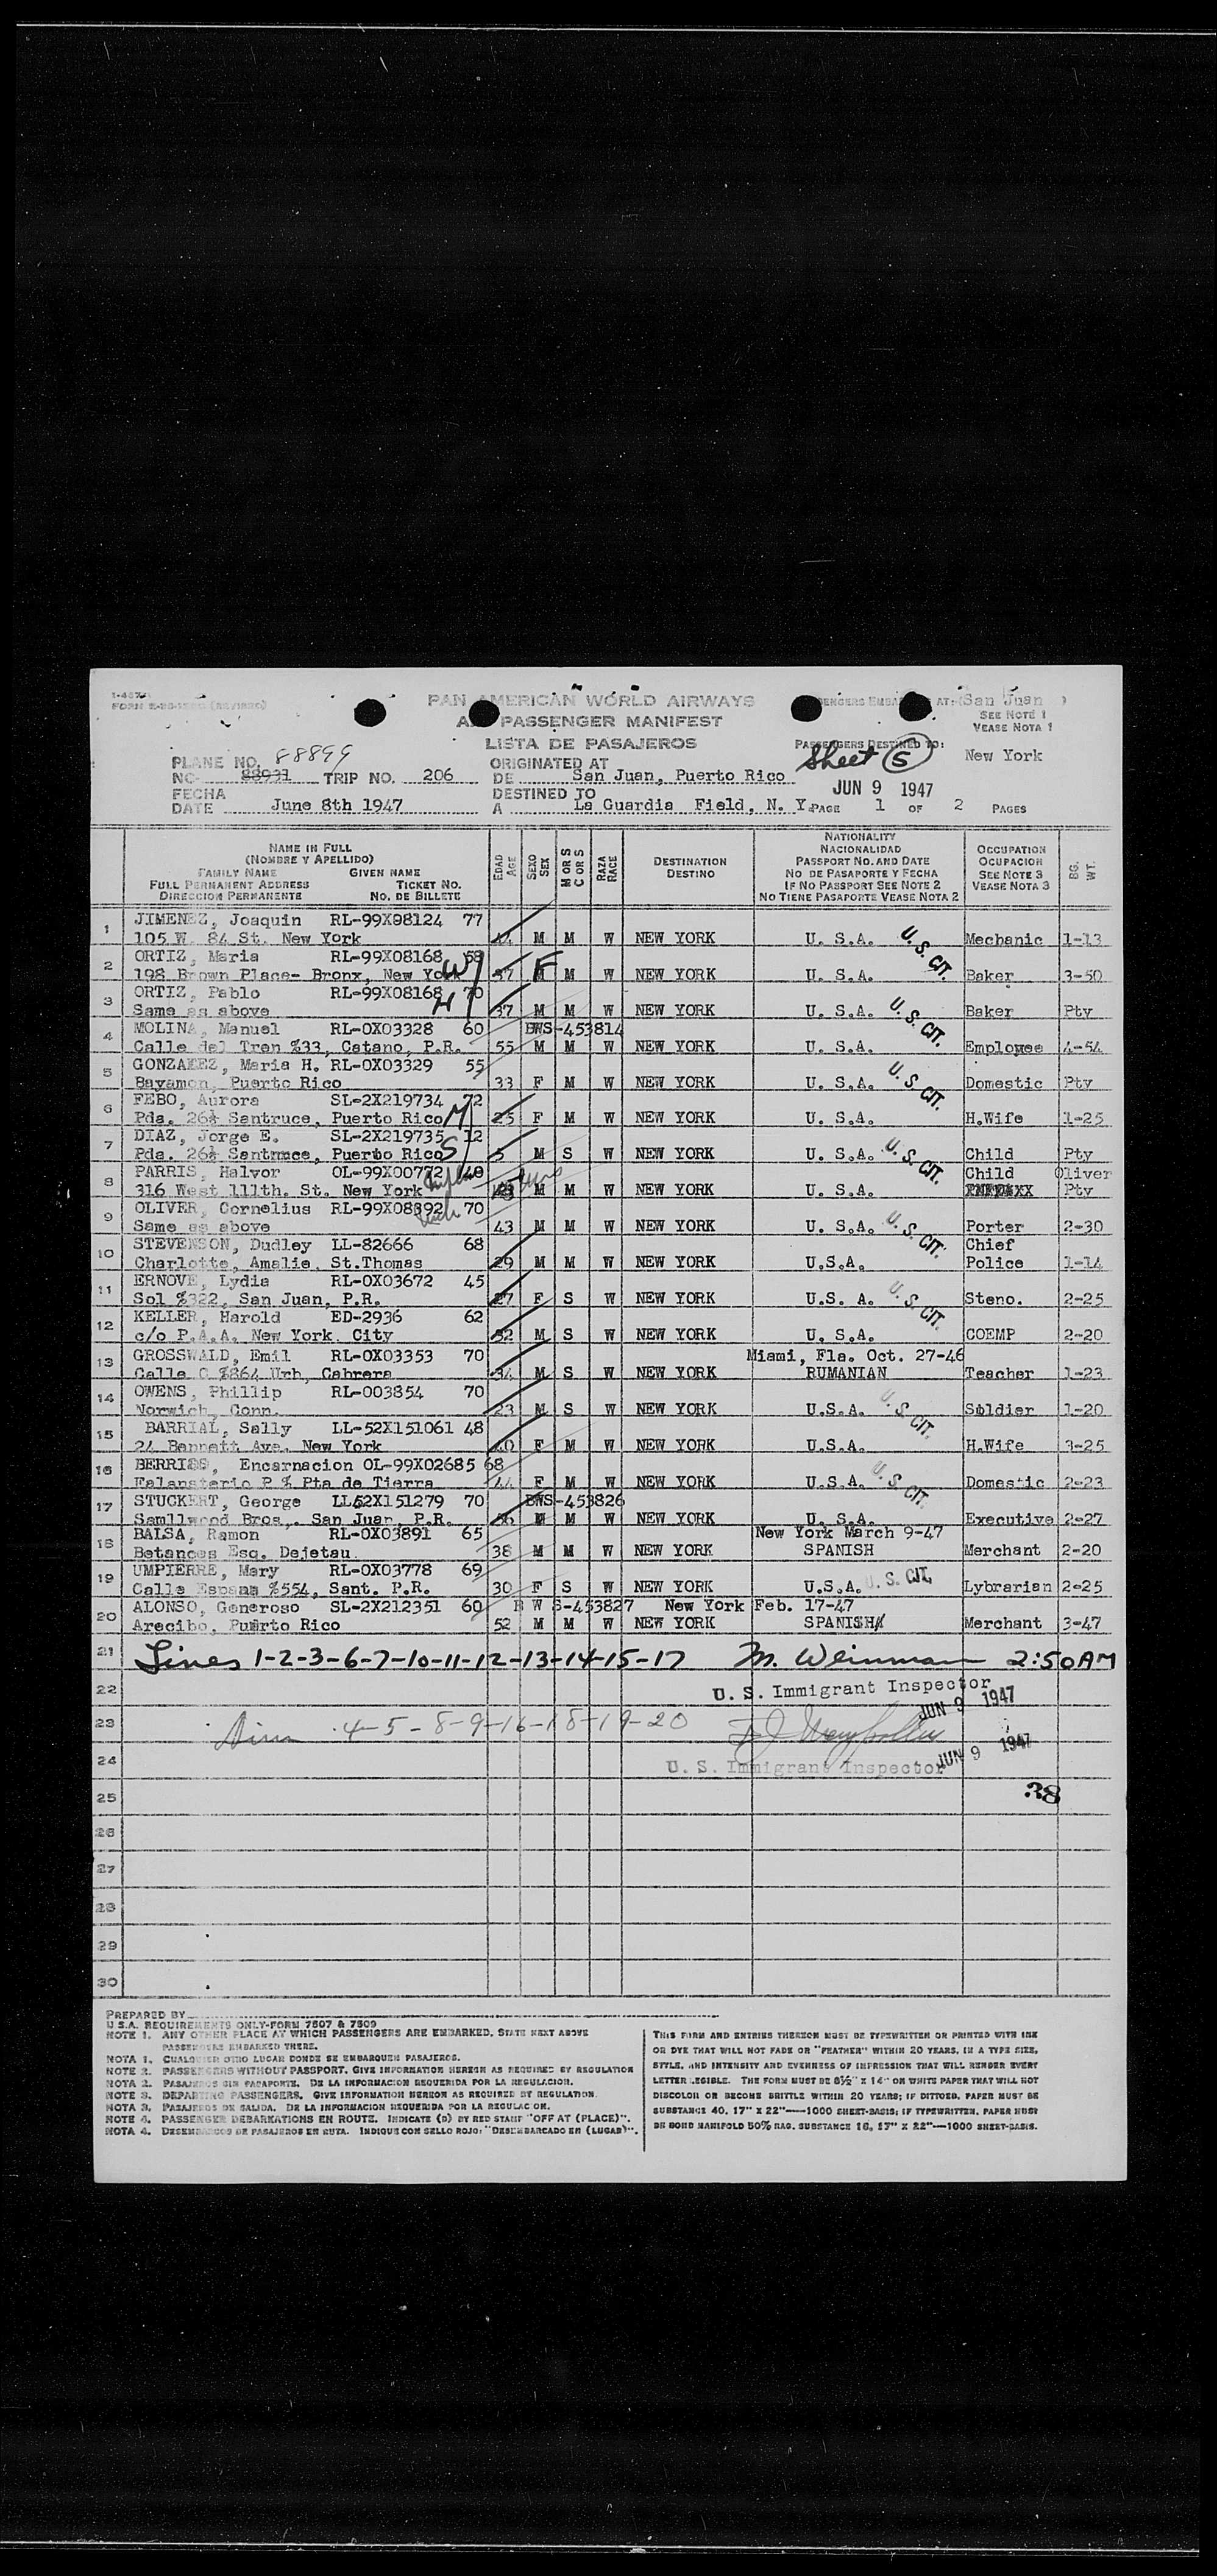 PAN AMERICAN WORLD AIRWAYS
PASSENGER MANIFEST
LISTA DE PASAJEROS
AT: (San Juan )
SEE NOTE 1
VEASE NOTA 1
PASSENGERS DESTINED TO:
New York
Sheet 5
JUN 9 1947
PAGE 1 OF 2 PAGES
PLANE NO. 88899
NO. 88931 TRIP NO. 206
FECHA
DATE June 8th 1947
ORIGINATED AT
DE San Juan, Puerto Rico
DESTINED TO
A La Guardia Field, N. Y.
NAME IN FULL
(NOMBRE Y APELLIDO)
FAMILY NAME GIVEN NAME
FULL PERMANENT ADDRESS TICKET NO.
DIRECCION PERMANENTE NO. DE BILLETE
EDAD AGE
SEXO SEX
M OR S C OR S
RAZA RACE
DESTINATION
DESTINO
NATIONALITY
NACIONALIDAD
PASSPORT NO. AND DATE
NO DE PASAPORTE Y FECHA
IF NO PASSPORT SEE NOTE 2
NO TIENE PASAPORTE VEASE NOTA 2
OCCUPATION
OCUPACION
SEE NOTE 3
VEASE NOTA 3
BG. WT.
1 JIMENEZ, Joaquin RL-99X08124 77
105 W. 84 St. New York M M W NEW YORK U. S.A. U. S. CIT. Mechanic 1-13
2 ORTIZ, Maria RL-99X08168 58
198 Brown Place- Bronx, New York W 37 F M W NEW YORK U. S.A. Baker 3-50
3 ORTIZ, Pablo RL-99X08168 70
Same as above H 37 M M W NEW YORK U. S.A. U. S. CIT. Baker Pty
4 MOLINA, Manuel RL-OX03328 60 BWS-453814
Calle del Tren %33, Catano, P.R. 55 M M W NEW YORK U. S.A. Employee 4-54
5 GONZALEZ, Maria H. RL-OX03329 55
Bayamon, Puerto Rico 33 F M W NEW YORK U. S.A. U. S. CIT. Domestic Pty
6 FEBO, Aurora SL-2X219734 72
Pda. 26½ Santruce, Puerto Rico M 25 F M W NEW YORK U. S.A. H.Wife 1-25
7 DIAZ, Jorge E. SL-2X219735 12
Pda. 26½ Santruce, Puerto Rico S 5 M S W NEW YORK U. S.A. U. S. CIT. Child Pty
8 PARRIS, Halvor OL-99X00772 40 Child Oliver
316 West 111th. St. New York M M W NEW YORK U. S.A. Pty
9 OLIVER, Cornelius RL-99X08392 70
Same as above 43 M M W NEW YORK U. S.A. U. S. CIT. Porter 2-30
10 STEVENSON, Dudley LL-82666 68 Chief
Charlotte, Amalie, St.Thomas 29 M M W NEW YORK U.S.A. Police 1-14
11 ERNOVE, Lydia RL-OX03672 45
Sol %322, San Juan, P.R. 27 F S W NEW YORK U.S. A. U. S. CIT. Steno. 2-25
12 KELLER, Harold ED-2936 62
c/o P.A.A. New York City 32 M S W NEW YORK U. S.A. COEMP 2-20
13 GROSSWALD, Emil RL-OX03353 70 Miami, Fla. Oct. 27-46
Calle C %864 Urb, Cabrera 34 M S W NEW YORK RUMANIAN Teacher 1-23
14 OWENS, Phillip RL-003854 70
Norwich, Conn. 23 M S W NEW YORK U.S.A. U. S. CIT. Soldier 1-20
15 BARRIAL, Sally LL-52X151061 48
24 Bennett Ave. New York 40 F M W NEW YORK U.S.A. H.Wife 3-25
16 BERRIOS, Encarnacion OL-99X02685 68
Falansterio P % Pta de Tierra 44 F M W NEW YORK U.S.A. U. S. CIT. Domestic 2-23
17 STUCKERT, George LL52X151279 70 BWS-453826
Samllwood Bros,. San Juan, P.R. M M W NEW YORK U. S.A. Executive 2-27
18 BALSA, Ramon RL-OX03891 65 New York March 9-47
Betances Esq. Dejetau 38 M M W NEW YORK SPANISH Merchant 2-20
19 UMPIERRE, Mary RL-OX03778 69
Calle Espana %554, Sant. P.R. 30 F S W NEW YORK U.S.A. U. S. CIT. Lybrarian 2-25
20 ALONSO, Generoso SL-2X212351 60 B W S-453827 New York Feb. 17-47
Arecibo, Puerto Rico 52 M M W NEW YORK SPANISH Merchant 3-47
21 Lines 1-2-3-6-7-10-11-12-13-14-15-17 M. Weinman 2:50AM
22 U. S. Immigrant Inspector JUN 9 1947
23 4-5-8-9-16-18-19-20
24 U. S. Immigrant Inspector JUN 9 1947
25 38
26
27
28
29
30
PREPARED BY
U S.A. REQUIREMENTS ONLY-FORM 7507 & 7509
NOTE 1. ANY OTHER PLACE AT WHICH PASSENGERS ARE EMBARKED, STATE NEXT ABOVE
PASSENGERS EMBARKED THERE.
NOTA 1. CUALQUIER OTRO LUGAR DONDE SE EMBARQUEN PASAJEROS.
NOTE 2. PASSENGERS WITHOUT PASSPORT. GIVE INFORMATION HEREON AS REQUIRED BY REGULATION
NOTA 2. PASAJEROS SIN PASAPORTE. DE LA INFORMACION REQUERIDA POR LA REGULACION.
NOTE 3. DEPARTING PASSENGERS. GIVE INFORMATION HEREON AS REQUIRED BY REGULATION.
NOTA 3. PASAJEROS DE SALIDA. DE LA INFORMACION REQUERIDA POR LA REGULACION.
NOTE 4. PASSENGER DEBARKATIONS EN ROUTE. INDICATE (D) BY RED STAMP "OFF AT (PLACE)".
NOTA 4. DESEMBARCOS DE PASAJEROS EN RUTA. INDIQUE CON SELLO ROJO: "DESEMBARCADO EN (LUGAR)".
THIS FORM AND ENTRIES THEREON MUST BE TYPEWRITTEN OR PRINTED WITH INK
OR DYE THAT WILL NOT FADE OR "FEATHER" WITHIN 20 YEARS, IN A TYPE SIZE,
STYLE, AND INTENSITY AND EVENNESS OF IMPRESSION THAT WILL RENDER EVERY
LETTER LEGIBLE. THE FORM MUST BE 8½" X 14" ON WHITE PAPER THAT WILL NOT
DISCOLOR OR BECOME BRITTLE WITHIN 20 YEARS; IF DITTOED, PAPER MUST BE
SUBSTANCE 40, 17" X 22"—1000 SHEET-BASIS; IF TYPEWRITTEN, PAPER MUST
BE BOND MANIFOLD 50% RAG, SUBSTANCE 16, 17" X 22"—1000 SHEET-BASIS.